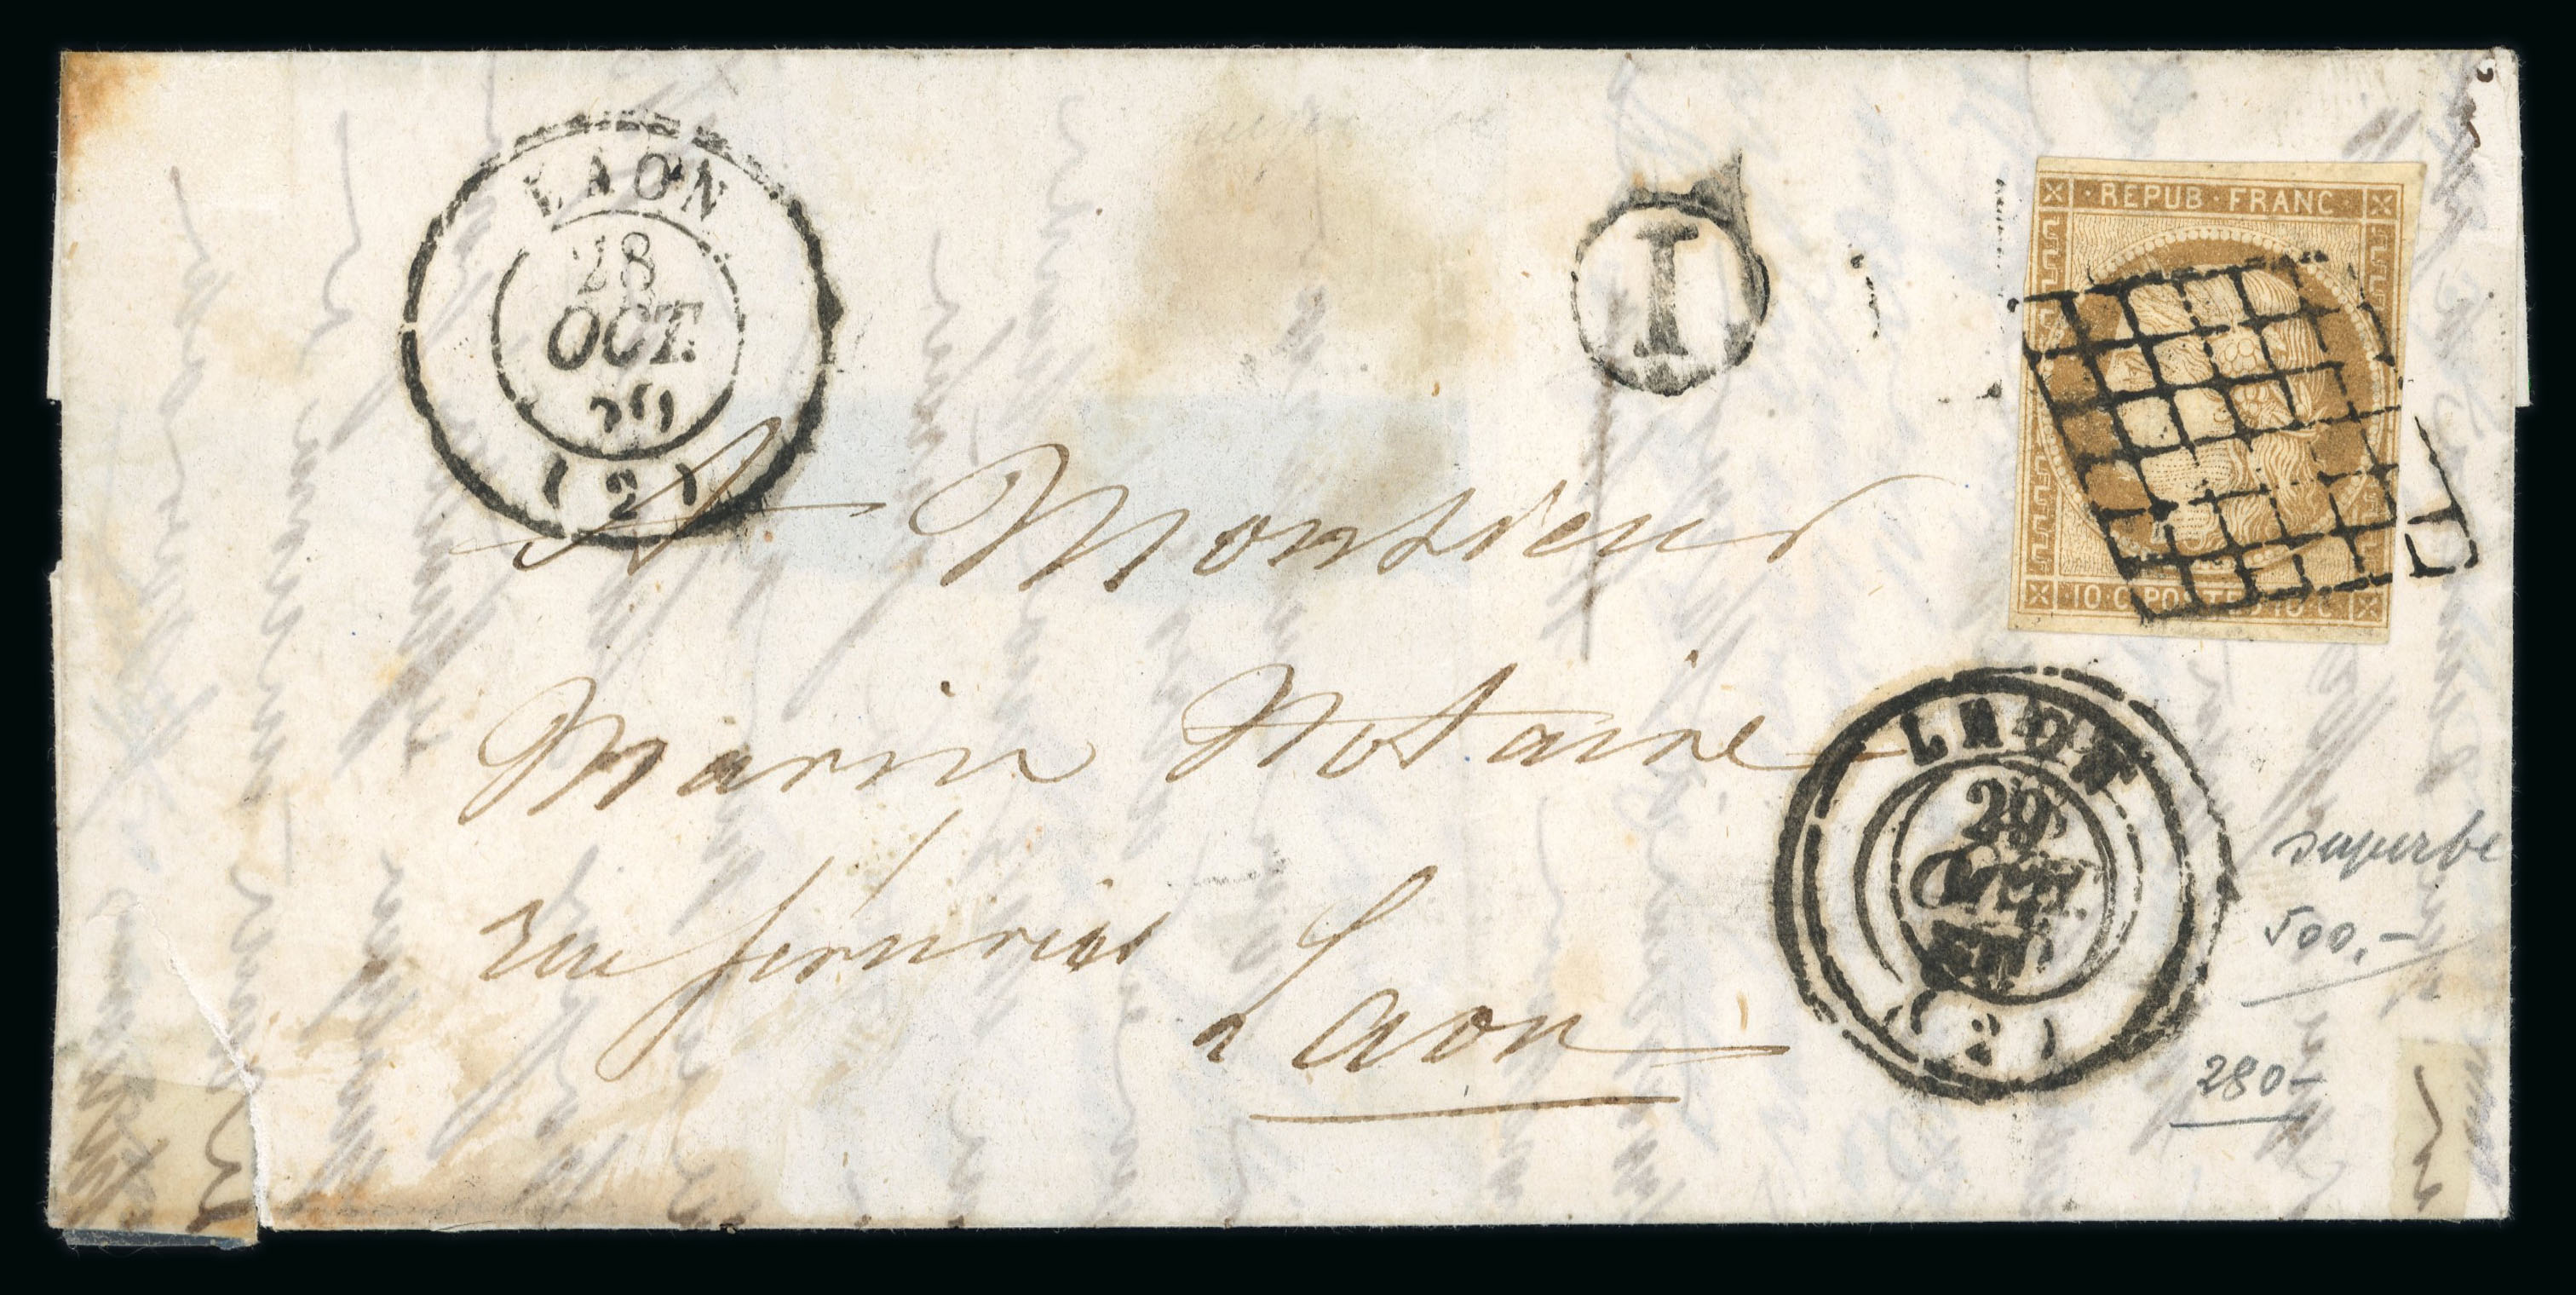 LAON
28
OCT.
50
(2)
I
REPUB FRANC
10·C POSTES 10·C
A Monsieur
Marin Notaire
rue
a Laon
LAON
29
OCT.
50
(2)
superbe
500.-
280-